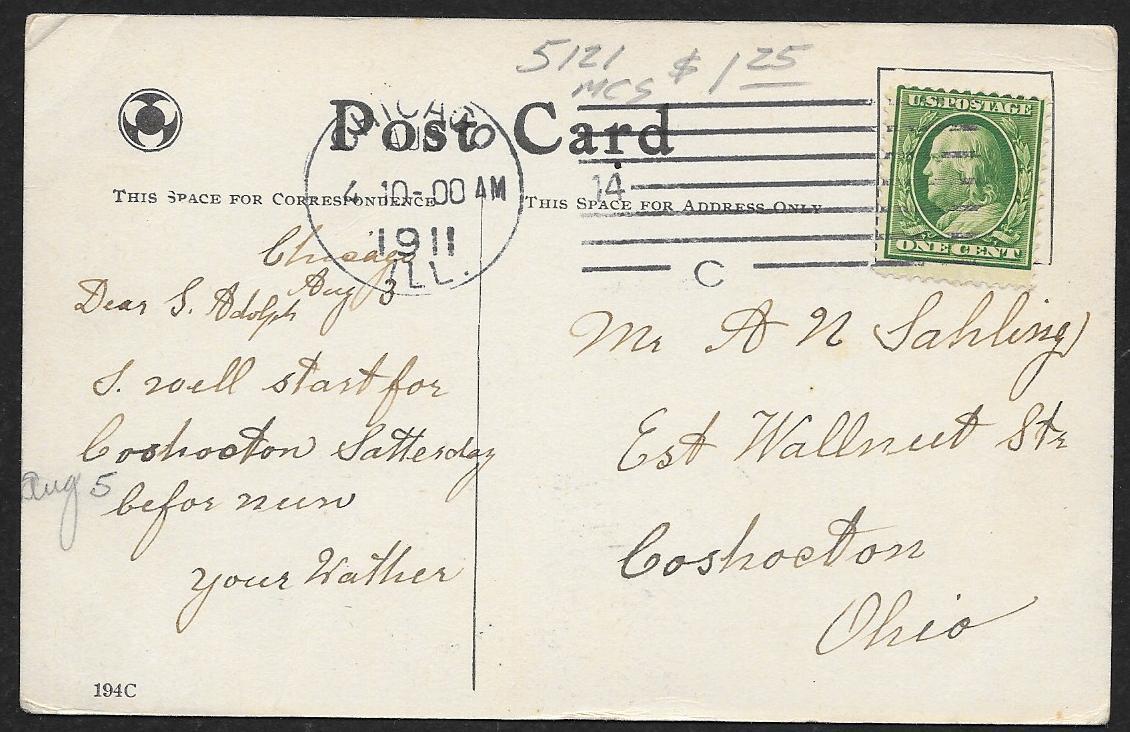 5121 $ 1 25
MCS
Post Card
CHICAGO
4 10-00 AM
1911
ILL.
14
C
U.S. POSTAGE
ONE CENT
THIS SPACE FOR CORRESPONDENCE
THIS SPACE FOR ADDRESS ONLY
Chicago
Aug 3
Dear S. Adolph
I. well start for
Coshocton Satterday
Aug 5
befor nun
your Wather
Mr A N Sahling
Est Wallnut Str
Coshocton
Ohio
194C